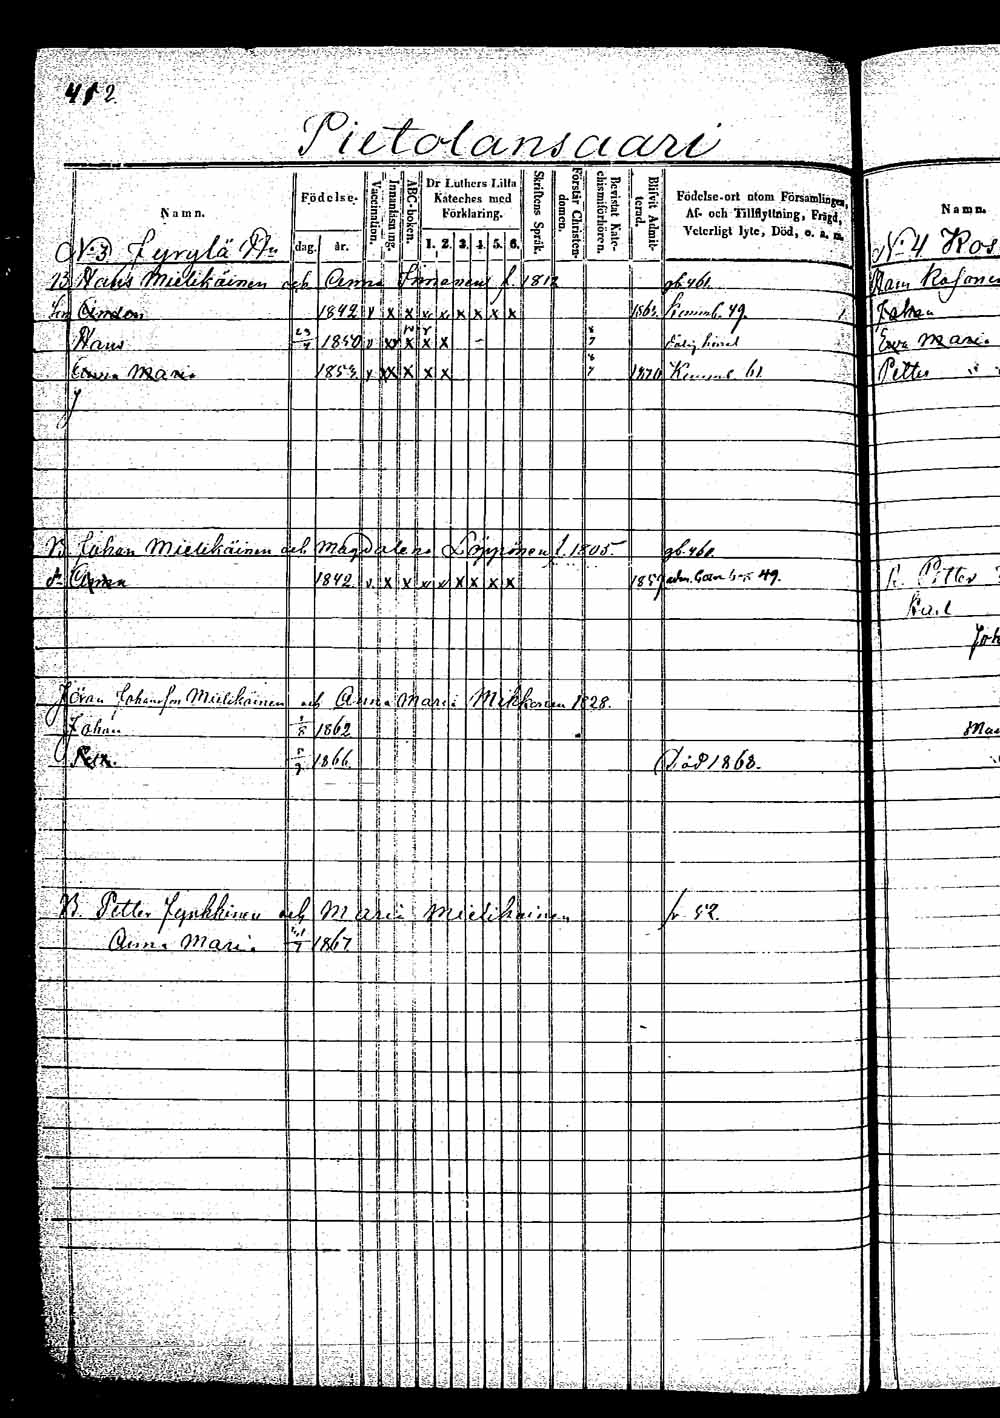 412.
Pietolansaari
Namn.
Födelse-
dag. år.
Vaccination.
Innanläsning.
ABC-boken.
Dr Luthers Lilla Kateches med Förklaring.
1. 2. 3. 4. 5. 6.
Skriftens Språk.
Förstår Christendomen.
Bevistat Katechismiförhören.
Blifvit Admitterad.
Födelse-ort utom Församlingen, Af- och Tillflyttning, Frägd, Veterligt lyte, Död, o. a. m.
No 3 Jyrylä
B. Hans Mielikäinen och Anna Immonen f. 1812 gb. 461.
Son 1842 v x x x x x x x x 1863 Kommb. 49.
Hans 1850 v x x x x
Ewa Maria 1853 v x x x x x 1870 61
B. Johan Mielikäinen och Magdalena Löppönen f. 1805. gb. 460.
Anna 1842. v. x x x x x x x x 1859 49.
Jöran Johansson Mielikäinen och Anna Maria Mikkonen 1828.
Johan 1862
1866 Död 1868.
B. Petter Jynkkinen och Maria Mielikainen fr. 52.
Anna Maria 1867
Namn.
No 4 Kos
Hans Kosonen
Johan
Ewa Maria
Petter
Petter
Karl
Joh
Mar